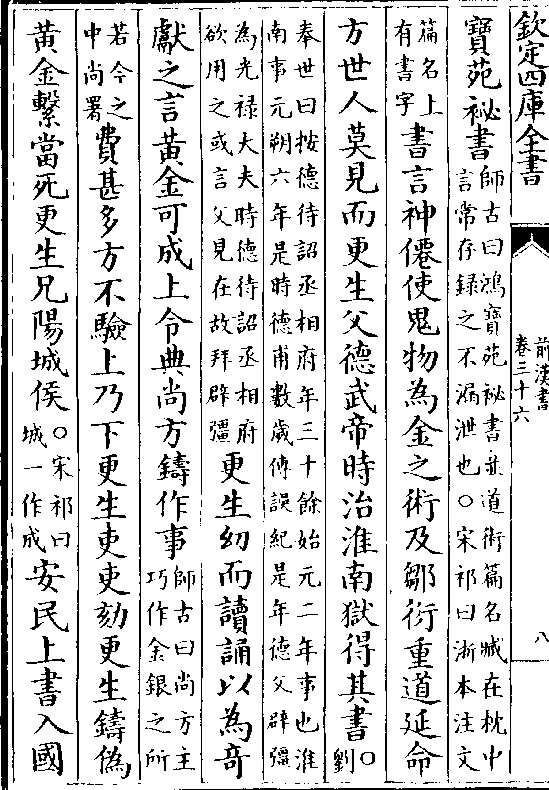 欽定四庫全書
前漢書
卷三十六
八
寶苑祕書師古曰鴻寶苑祕書並道術篇名臧在枕中
言常存録之不漏泄也○宋祁曰浙本注文
篇名上
有書字書言神僊使鬼物為金之術及鄒衍重道延命
方世人莫見而更生父德武帝時治淮南獄得其書○劉
奉世曰按德待詔丞相府年三十餘始元二年事也淮
南事元朔六年是時德甫數歲傳誤紀是年德父辟彊
為光禄大夫時德待詔丞相府
欲用之或言父見在故拜辟彊更生幼而讀誦以為奇
獻之言黃金可成上令典尚方鑄作事師古曰尚方主
巧作金銀之所
若今之
中尚署費甚多方不驗上乃下更生吏吏劾更生鑄偽
黃金繫當死更生兄陽城侯○宋祁曰
城一作成安民上書入國